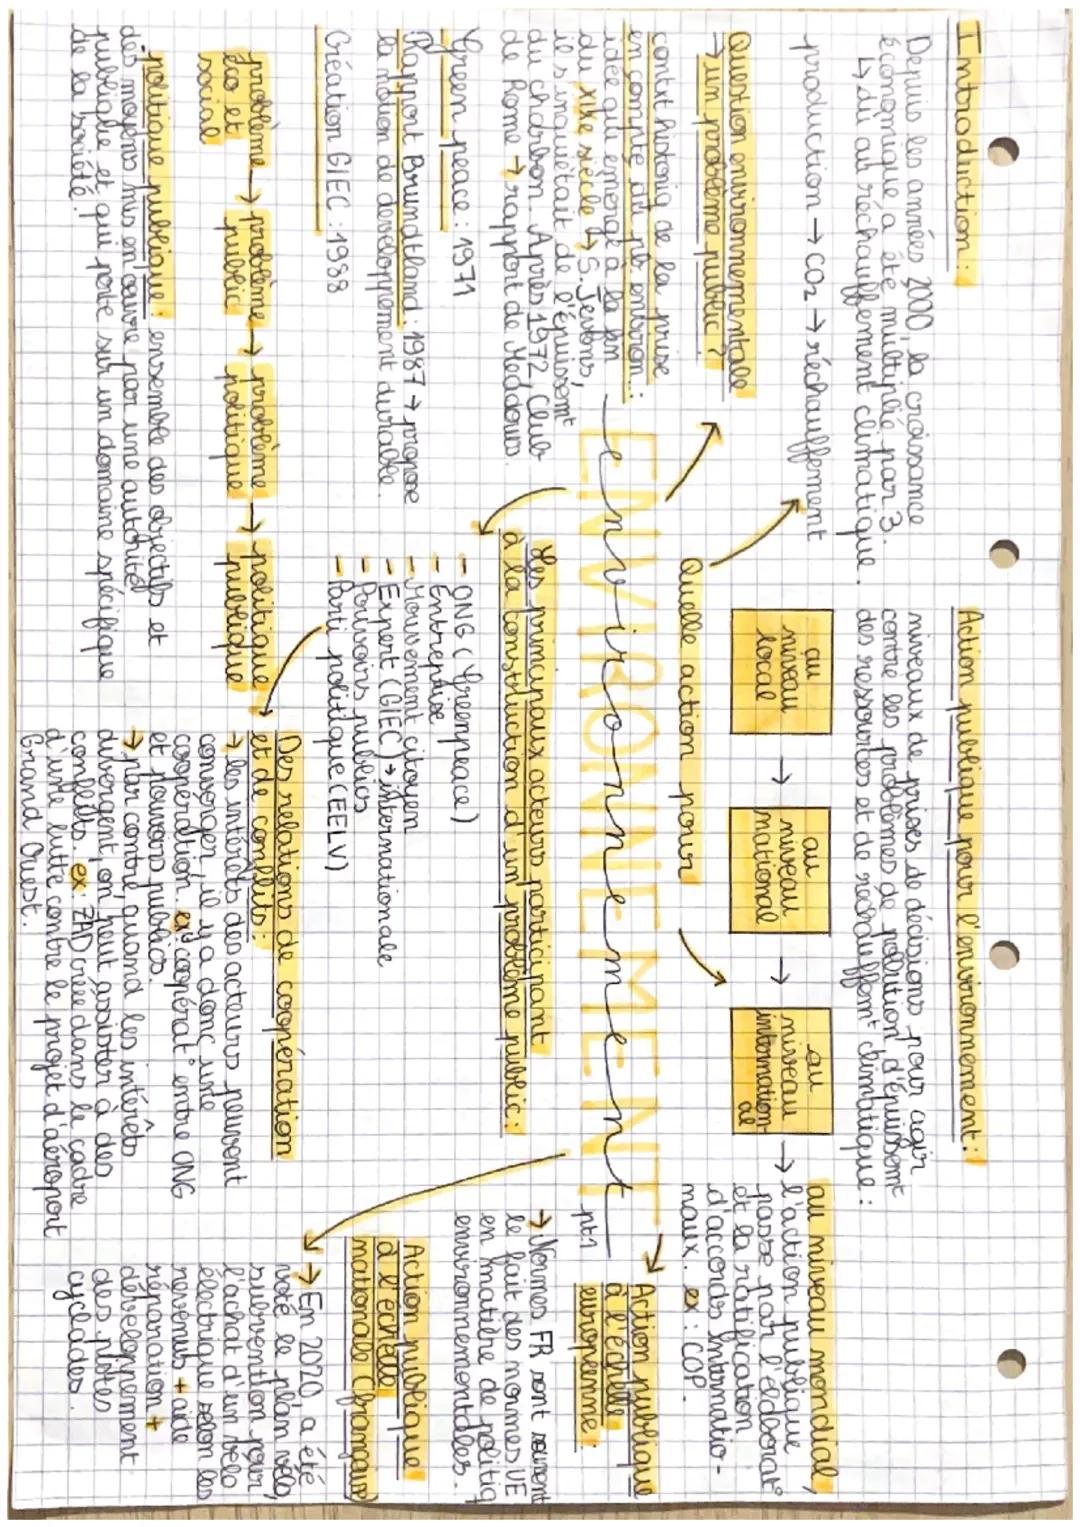 Introduction:
Depuis les années 2000, la croissance
économique a été multipliée par 3.
↳ dû au réchauffement climatique.
production → CO2 → réchauffement
Action publique pour l'environnement:
niveaux de prises de décisions pour agir
contre les problèmes de pollution, d'épuisemt
des ressources et de réchauffemt climatique:
Quelle action pour
au
niveau
local
→
au
niveau
national
→
au
niveau
internation-
al
→
au niveau mondial,
l'action publique
passe par l'élaborat°
et la ratification
d'accords Internatio-
naux. ex: COP.
Question environnementale
→ un problème public?
contxt historiq de la prise
en compte du pb environ.:
idée qui émerge à la fin
du XIXe siècle ↳ S. Jevons,
il s'inquiétait de l'épuisemt
du charbon. Après 1972, Club
de Rome → rapport de Meadows.
Green peace: 1971
Rapport Brundtland: 1987 → propose
la notion de développement durable.
Création GIEC: 1988
ENVIRONNEMENT
environnement
Les principaux acteurs participant
à la construction d'un problème public:
- ONG (Greenpeace)
- Entreprise
- Mouvement citoyen
- Expert (GIEC) → internationale
- Pouvoirs publics
- Parti politique (EELV)
pt1
Action publique
à l'échelle
européenne:
→ Normes FR sont souvent
le fait des normes UE
en matière de politiq
environnementales.
Action publique
à l'échelle
nationale (française)
→ En 2020, a été
voté le plan vélo,
subvention pour
l'achat d'un vélo
électrique selon les
revenus + aide
réparation +
développement
des pistes
cyclables.
problème → problème → problème → politique
éco et public politique publique
social
politique publique: ensemble des objectifs et
des moyens mis en œuvre par une autorité
publique et qui porte sur un domaine spécifique
de la société.
Des relations de coopération
et de conflits:
→ les intérêts des acteurs peuvent
converger, il y a donc une
coopération. ex: coopérat° entre ONG
et pouvoirs publics.
→ par contre, quand les intérêts
divergent, on peut assister à des
conflits. ex: ZAD créée dans le cadre
d'une lutte contre le projet d'aéroport
Grand Ouest.